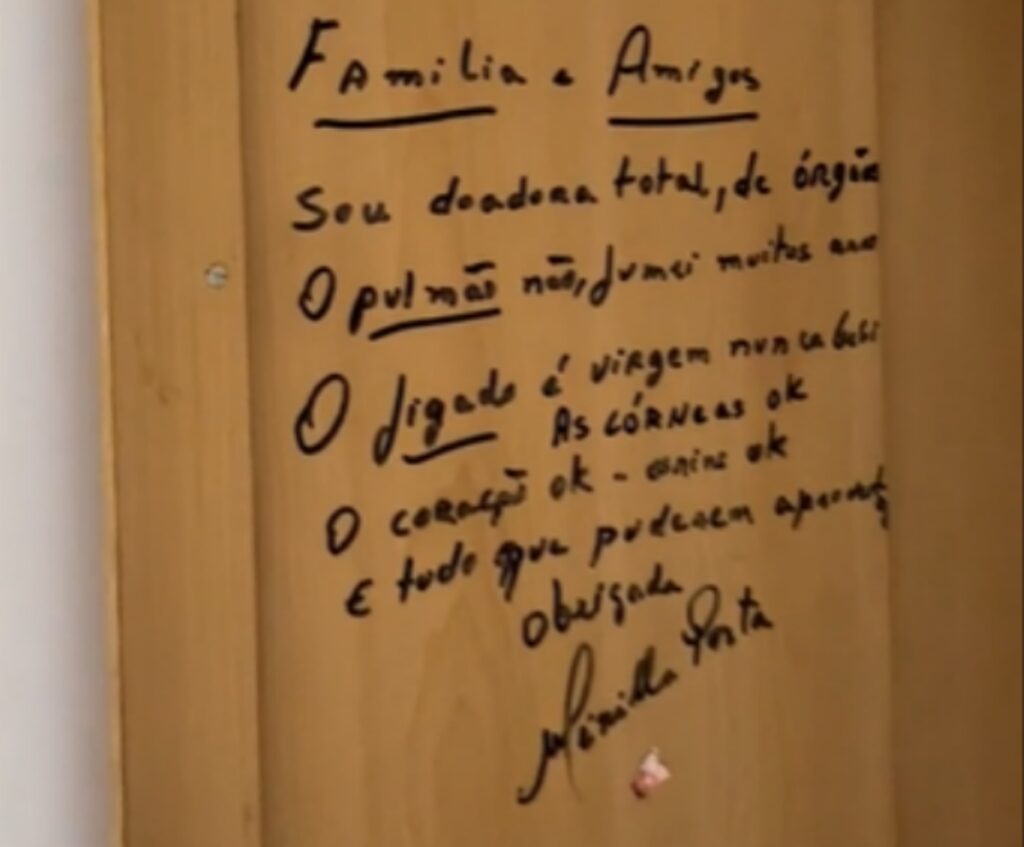 FAmiliA e Amigos
Sou doadora total, de órgão
O pulmão não, fumei muitos ano
O fígado é virgem nunca bebi
As córneas ok
O coração ok - ok
E tudo que puderem aproveit
obrigada
Porta